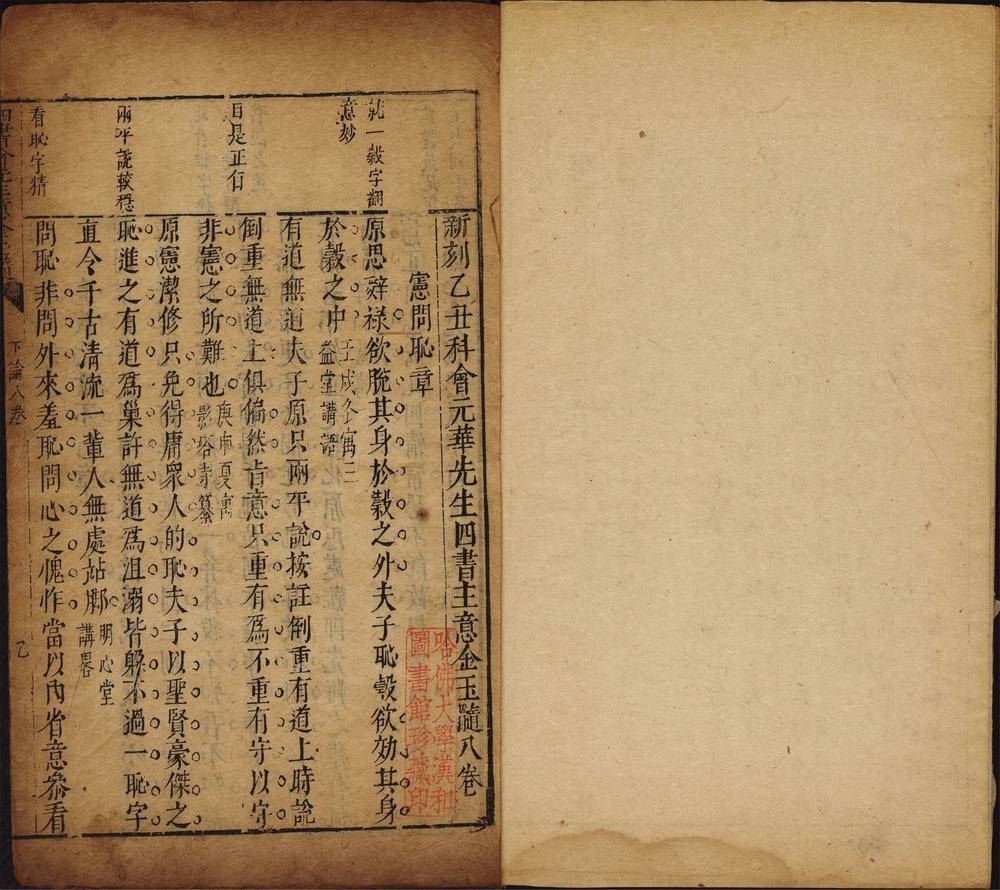 新刻乙丑科會元華先生四書主意金玉髓八卷
憲問恥章
就一穀字翻
意妙
原思辭祿欲脫其身於穀之外夫子恥穀欲効其身
於穀之中
益堂講語
有道無道夫子原只兩平說按註倒重有道上時說
目是正佰
倒重無道上俱偏然肯意只重有爲不重有守以守
非憲之所難也
庚申夏寓
影塔寺纂
原憲潔修只免得庸衆人的恥夫子以聖賢豪傑之
兩平說較穩
恥進之有道爲巢許無道爲沮溺皆躱不過一恥字
直令千古清流一輩人無處站脚
明心堂
講畧
看恥字猜
問恥非問外來羞恥問心之愧怍當以內省意叅看
下論八卷
乙
哈佛大學漢和
圖書館珍藏印